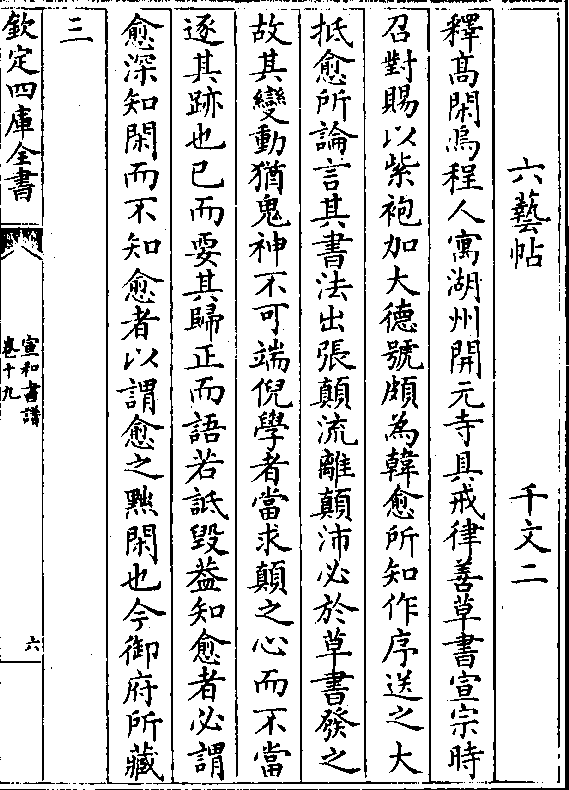 六藝帖　千文二
釋髙閑烏程人寓湖州開元寺具戒律善草書宣宗時
召對賜以紫袍加大德號頗為韓愈所知作序送之大
抵愈所論言其書法出張顛流離顛沛必於草書發之
故其變動猶鬼神不可端倪學者當求顛之心而不當
逐其跡也已而要其歸正而語若詆毀葢知愈者必謂
愈深知閑而不知愈者以謂愈之黜閑也今御府所藏
三
欽定四庫全書
宣和書譜
卷十九
六